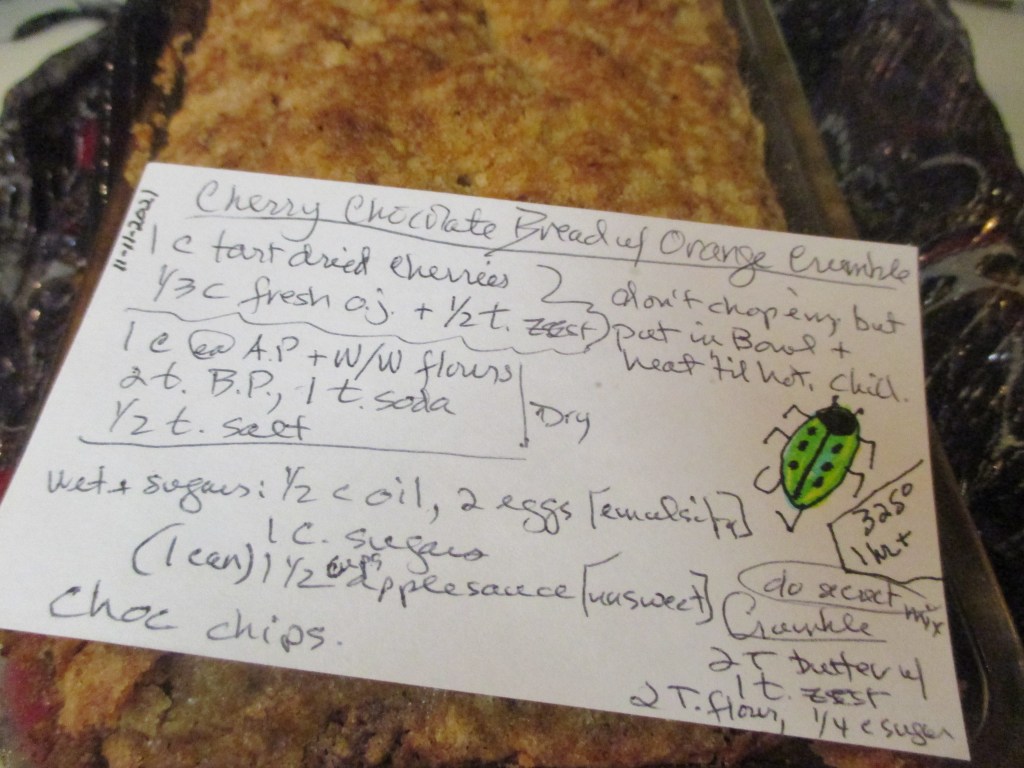 11-11-2021
Cherry Chocolate Bread w/ Orange Crumble
1 c tart dried cherries
1/3 c fresh o.j. + 1/2 t. zest
don't chop 'em, but
put in Bowl +
heat 'til hot. Chill.
1 c ea A.P + W/W flours
2 t. B.P., 1 t. soda
1/2 t. salt
Dry
wet + sugars: 1/2 c oil, 2 eggs [emulsify]
1 C. sugars
(1 can) 1 1/2 cups applesauce [unsweet]
Choc chips.
325°
1 hr +
do secret mix
Crumble
2 T butter w/
1 t. zest
2 T. flour, 1/4 c sugar